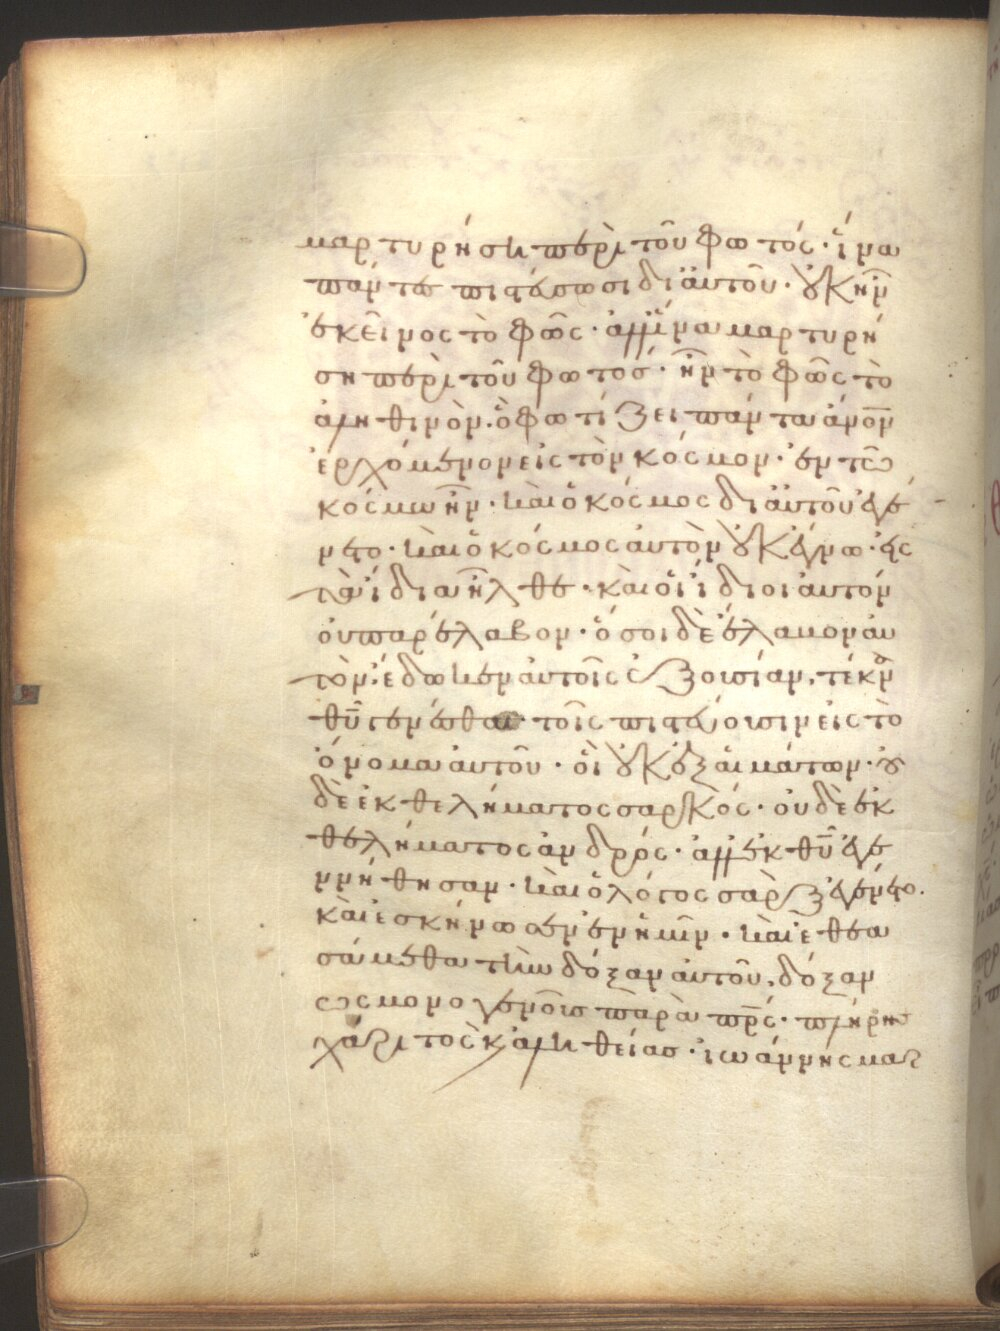 μαρτυρήση περὶ τοῦ φωτός· ἵνα
πάντες πιστεύσωσι δι αὐτοῦ· οὐκ ἦν
ἐκεῖνος τὸ φῶς· ἀλλ ἵνα μαρτυρή
ση περὶ τοῦ φωτός· ἦν τὸ φῶς τὸ
ἀληθινὸν· ὃ φωτίζει πάντα ἀνον
ἐρχόμενον εἰς τὸν κόσμον· ἐν τῶ
κόσμω ἦν· καὶ ὁ κόσμος δι αὐτοῦ ἐγέ
νετο· καὶ ὁ κόσμος αὐτὸν οὐκ ἔγνω· εἰς
τὰ ἴδια ἦλθε· καὶ οἱ ἴδιοι αὐτὸν
οὐ παρέλαβον· ὅσοι δὲ ἔλαβον αὐ
τὸν· ἔδωκεν αὐτοῖς ἐξουσίαν, τέκνα
θυ γενέσθαι· τοῖς πιστεύουσιν εἰς τὸ
ὄνομα αὐτοῦ· οἳ οὐκ ἐξ αἱμάτων· οὐ
δὲ ἐκ θελήματος σαρκός· οὐδὲ ἐκ
θελήματος ἀνδρός· ἀλλ ἐκ θυ ἐγε
ννήθησαν· καὶ ὁ λόγος σὰρξ ἐγένετο·
καὶ ἐσκήνωσεν ἐν ἡμῖν· καὶ ἐθεα
σάμεθα τὴν δόξαν αὐτοῦ, δόξαν
ὡς μονογενοῦς παρὰ πρς· πλήρης
χάριτος κ ἀληθείας· ἰωάννης μαρ